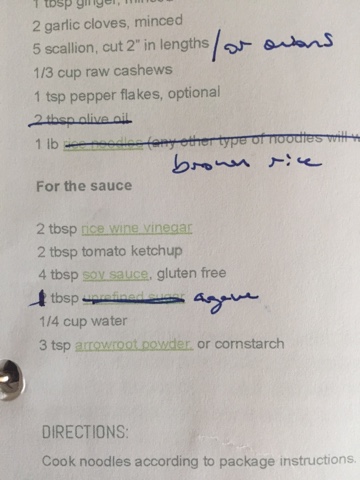 1 tbsp ginger, minced
2 garlic cloves, minced
5 scallion, cut 2" in lengths /or onions
1/3 cup raw cashews
1 tsp pepper flakes, optional
2 tbsp olive oil
1 lb rice noodles (any other type of noodles will w
brown rice
For the sauce
2 tbsp rice wine vinegar
2 tbsp tomato ketchup
4 tbsp soy sauce, gluten free
1 tbsp unrefined sugar agave
1/4 cup water
3 tsp arrowroot powder, or cornstarch
DIRECTIONS:
Cook noodles according to package instructions.